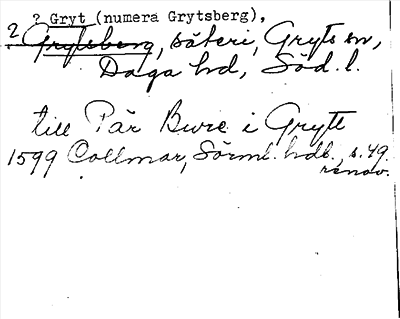 ? Gryt (numera Grytsberg),
? Grytsberg, säteri, Gryts sn,
Daga hd, Söd. l.
till Pär Bure i Grytt
1599 Collmar, Sörml. hdl. s. 49.
renov.